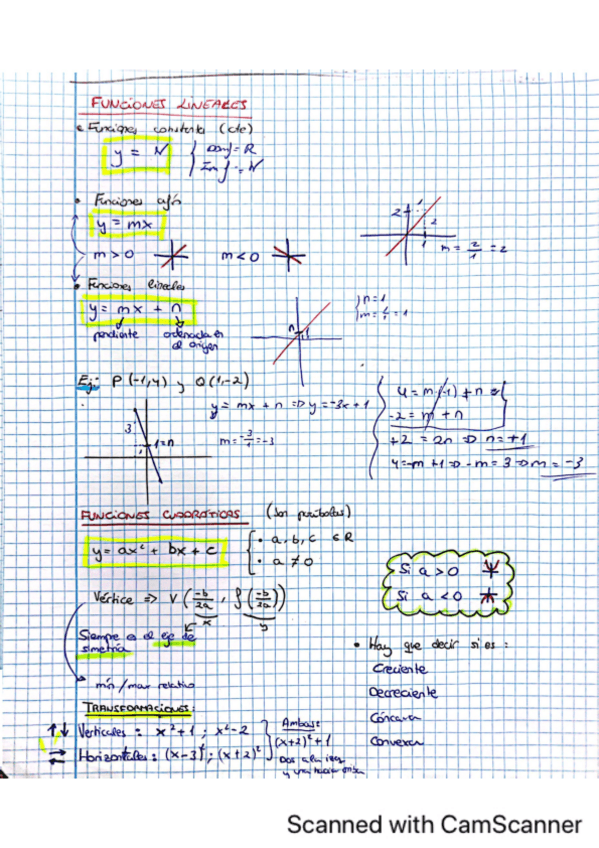 FUNCIONES LINEALES
• Funciones constante (cte)
y = N { Dom f = R
Im f = N
• Funciones afín
y = mx
m > 0 m < 0
2 1 2
m = 2/1 = 2
• Funciones lineales
y = mx + n
pendiente ordenada en el origen
n 1
n = 1
m = 1/1 = 1
Ej: P(-1,4) y Q(1,-2)
3 1 = n
y = mx + n => y = -3x + 1
m = -3/1 = -3
4 = m(-1) + n
-2 = m + n
+2 = 2n => n = +1
4 = -m + 1 => -m = 3 => m = -3
FUNCIONES CUADRÁTICAS (Son parábolas)
y = ax² + bx + c { • a, b, c ∈ R
• a ≠ 0
Si a > 0
Si a < 0
Vértice => V (-b/2a , f(-b/2a))
x y
Siempre es el eje de simetría
mín / max relativo
• Hay que decir si es:
Creciente
Decreciente
Cóncava
Convexa
TRANSFORMACIONES:
↑↓ Verticales: x² + 1 ; x² - 2
⇄ Horizontales: (x-3)² ; (x+2)²
Ambas:
(x+2)² + 1
Dos a la izq
y una hacia arriba
Scanned with CamScanner